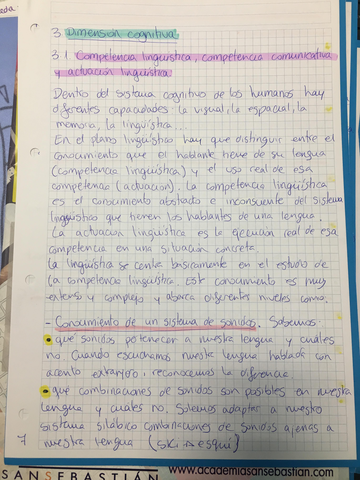 3. Dimensión cognitiva
3.1. Competencia lingüística, competencia comunicativa
y actuación lingüística
Dentro del sistema cognitivo de los humanos hay
diferentes capacidades la visual, la espacial, la
memoria, la lingüística...
En el plano lingüístico hay que distinguir entre el
conocimiento que el hablante tiene de su lengua
(competencia lingüística) y el uso real de esa
competencia (actuación). La competencia lingüística
es el conocimiento abstracto e inconsciente del sistema
lingüístico que tienen los hablantes de una lengua.
La actuación lingüística es la ejecución real de esa
competencia en una situación concreta.
La lingüística se centra basicamente en el estudio de
la competencia lingüística. Este conocimiento es muy
extenso y complejo y abarca diferentes niveles como:
- Conocimiento de un sistema de sonidos. Sabemos:
que sonidos pertenecen a nuestra lengua y cuales
no. Cuando escuchamos nuestra lengua hablada con
acento extranjero, reconocemos la diferencia
que combinaciones de sonidos son posibles en nuestra
lengua y cuales no. Solemos adaptar a nuestro
sistema silábico combinaciones de sonidos ajenas a
nuestra lengua (ski → esquí)
7
SANSEBASTIÁN
www.academiasansebastian.com